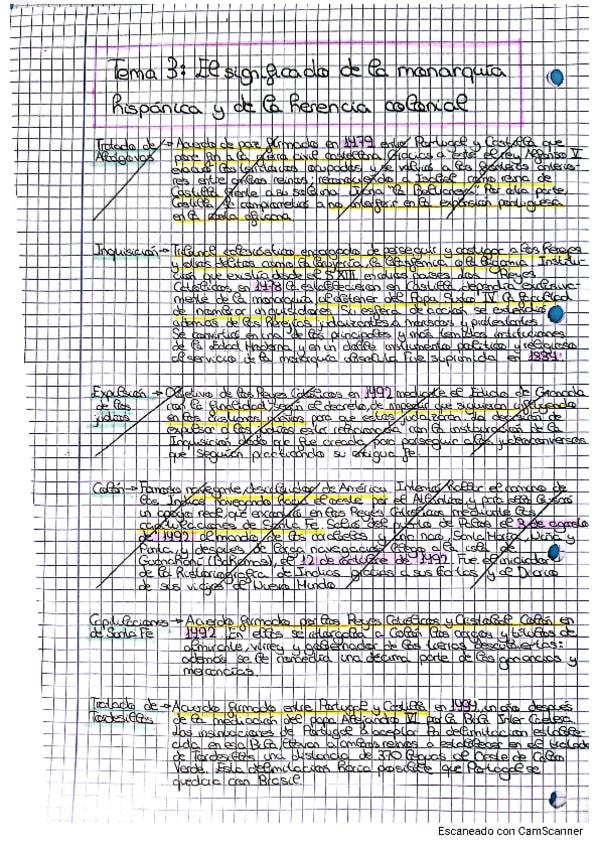 Tema 3: El significado de la monarquía
hispánica y de la herencia colonial
Tratado de → Acuerdo de paz firmado en 1479 entre Portugal y Castilla que
Alcaçovas
pone fin a la guerra civil castellana. Gracias a este el rey Alfonso V
res entre ambos reinos; reconociendo a Isabel como reina de
Castilla frente a su sobrina Juana "la Beltraneja". Por otra parte,
Castilla se comprometía a no interferir en la expansión portuguesa
en la costa africana.
Inquisición → Tribunal eclesiástico encargado de perseguir y castigar a los herejes
y otros delitos como la brujería, la blasfemia o la bigamia. Institu-
ción que existía desde el S.XIII en otros países. Los Reyes
Católicos en 1478 la establecieron en Castilla, dependía exclusiva-
mente de la monarquía, al obtener del Papa Sixto IV la facultad
de nombrar inquisidores. Su esfera de acción se extendió
además de los herejes y judaizantes a moriscos y protestantes.
Se convirtió en una de las principales y más temibles instituciones
de la Edad Moderna y en un doble instrumento político y religioso
al servicio de la monarquía absoluta. Fue suprimida en 1834.
Expulsión → Objetivo de los Reyes Católicos en 1492 mediante el Edicto de Granada
de los
judíos
con la finalidad, según el decreto, de impedir que siguieran influyendo
en los cristianos nuevos para que estos judaizaran. La decisión de
expulsar a los judíos está relacionada con la instauración de la
Inquisición dado que fue creada para perseguir a los judeoconversos
que seguían practicando su antigua fe.
Colón → Famoso navegante, descubridor de América. Intentó hallar el camino de
las Indias navegando hacia el oeste por el Atlántico, y para ello buscó
un apoyo real, que encontró en los Reyes Católicos mediante las
capitulaciones de Santa Fe. Salió del puerto de Palos el 3 de agosto
de 1492 al mando de dos carabelas y una nao, Santa María, Niña y
Pinta y después de larga navegación llegó a la isla de
Guanahaní (Bahamas), el 12 de octubre de 1492. Fue el iniciador
de la historiografía de Indias gracias a sus Cartas y el Diario
de sus viajes al Nuevo Mundo.
Capitulaciones → Acuerdo firmado por los Reyes Católicos y Cristóbal Colón en
de Santa Fe
1492. En ellas se otorgaba a Colón los cargos y títulos de
almirante, virrey y gobernador de las tierras descubiertas;
además se le concedía una décima parte de las ganancias y
mercancías.
Tratado de → Acuerdo firmado entre Portugal y Castilla en 1494, un año después
Tordesillas
de la mediación del papa Alejandro VI por la Bula Inter Caetera.
Las reclamaciones de Portugal a aceptar la delimitación estable-
cida en esa Bula, llevan a ambos reinos a establecer en el tratado
de Tordesillas una distancia de 370 leguas al Oeste de Cabo
Verde. Esta delimitación haría posible que Portugal se
quedara con Brasil.
Escaneado con CamScanner